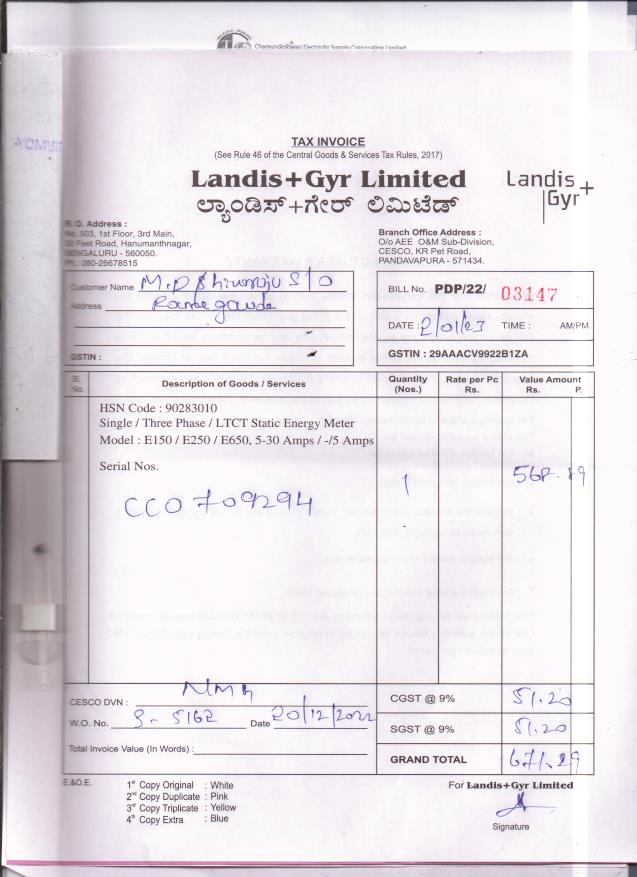 Chamundeshwari Electricity Supply Corporation Limited
TAX INVOICE
(See Rule 46 of the Central Goods & Services Tax Rules, 2017)
Landis+Gyr Limited
Landis+
Gyr
ಲ್ಯಾಂಡಿಸ್+ಗೇರ್ ಲಿಮಿಟೆಡ್
R. O. Address :
No. 503, 1st Floor, 3rd Main,
Feet Road, Hanumanthnagar,
BENGALURU - 560050.
Ph. 080-26678515
Branch Office Address :
O/o AEE O&M Sub-Division,
CESCO, KR Pet Road,
PANDAVAPURA - 571434.
Customer Name M.D Shivaraju S/O
Address Rame gauda
GSTIN :
BILL No. PDP/22/ 03147
DATE : 2/01/23 TIME : AM/PM
GSTIN : 29AAACV9922B1ZA
Sl. No. Description of Goods / Services Quantity (Nos.) Rate per Pc Rs. Value Amount Rs. P.
HSN Code : 90283010
Single / Three Phase / LTCT Static Energy Meter
Model : E150 / E250 / E650, 5-30 Amps / -/5 Amps
Serial Nos.
CC0709294 1 568.89
CESCO DVN :
W.O. No. 3-5162 Date 20/12/2022
Total Invoice Value (In Words) :
CGST @ 9% 51.20
SGST @ 9% 51.20
GRAND TOTAL 671.29
E.&O.E.
1st Copy Original : White
2nd Copy Duplicate : Pink
3rd Copy Triplicate : Yellow
4th Copy Extra : Blue
For Landis+Gyr Limited
Signature